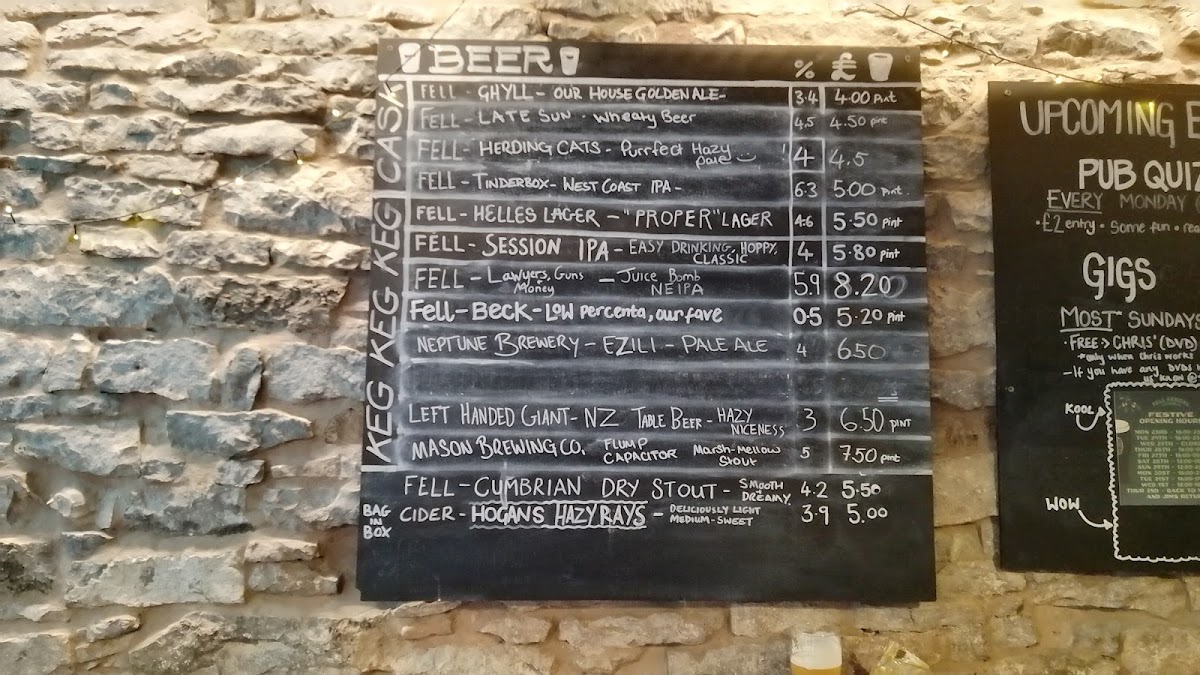 BEER % £
CASK
FELL - GHYLL - OUR HOUSE GOLDEN ALE - 3.4 4.00 Pint
FELL - LATE SUN - Wheaty Beer 4.5 4.50 pint
FELL - HERDING CATS - Purrfect Hazy pale 4 4.5
FELL - TINDERBOX - WEST COAST IPA - 6.3 5.00 Pint.
KEG KEG KEG
FELL - HELLES LAGER - "PROPER" LAGER 4.6 5.50 pint
FELL - SESSION IPA - EASY DRINKING, HOPPY, CLASSIC 4 5.80 pint
FELL - Lawyers, Guns & Money - Juice Bomb NEIPA 5.9 8.20
FELL - BECK - LOW percenta, our fave 0.5 5.20 pint
NEPTUNE BREWERY - EZILI - PALE ALE 4 6.50
LEFT HANDED GIANT - NZ TABLE BEER - HAZY NICENESS 3 6.50 PINT
MASON BREWING CO. FLUMP CAPACITOR Marsh-Mellow Stout 5 7.50 pint
FELL - CUMBRIAN DRY STOUT - SMOOTH & DREAMY. 4.2 5.50
BAG IN BOX
CIDER - HOGANS HAZY RAYS - DELICIOUSLY LIGHT MEDIUM-SWEET 3.9 5.00
UPCOMING E
PUB QUIZ
EVERY MONDAY
• £2 entry • Some fun • rea
GIGS
MOST SUNDAYS
• FREE → CHRIS' (DVD)
*only when Chris works
- If you have any DVDs
KOOL
FESTIVE
OPENING HOURS
WOW